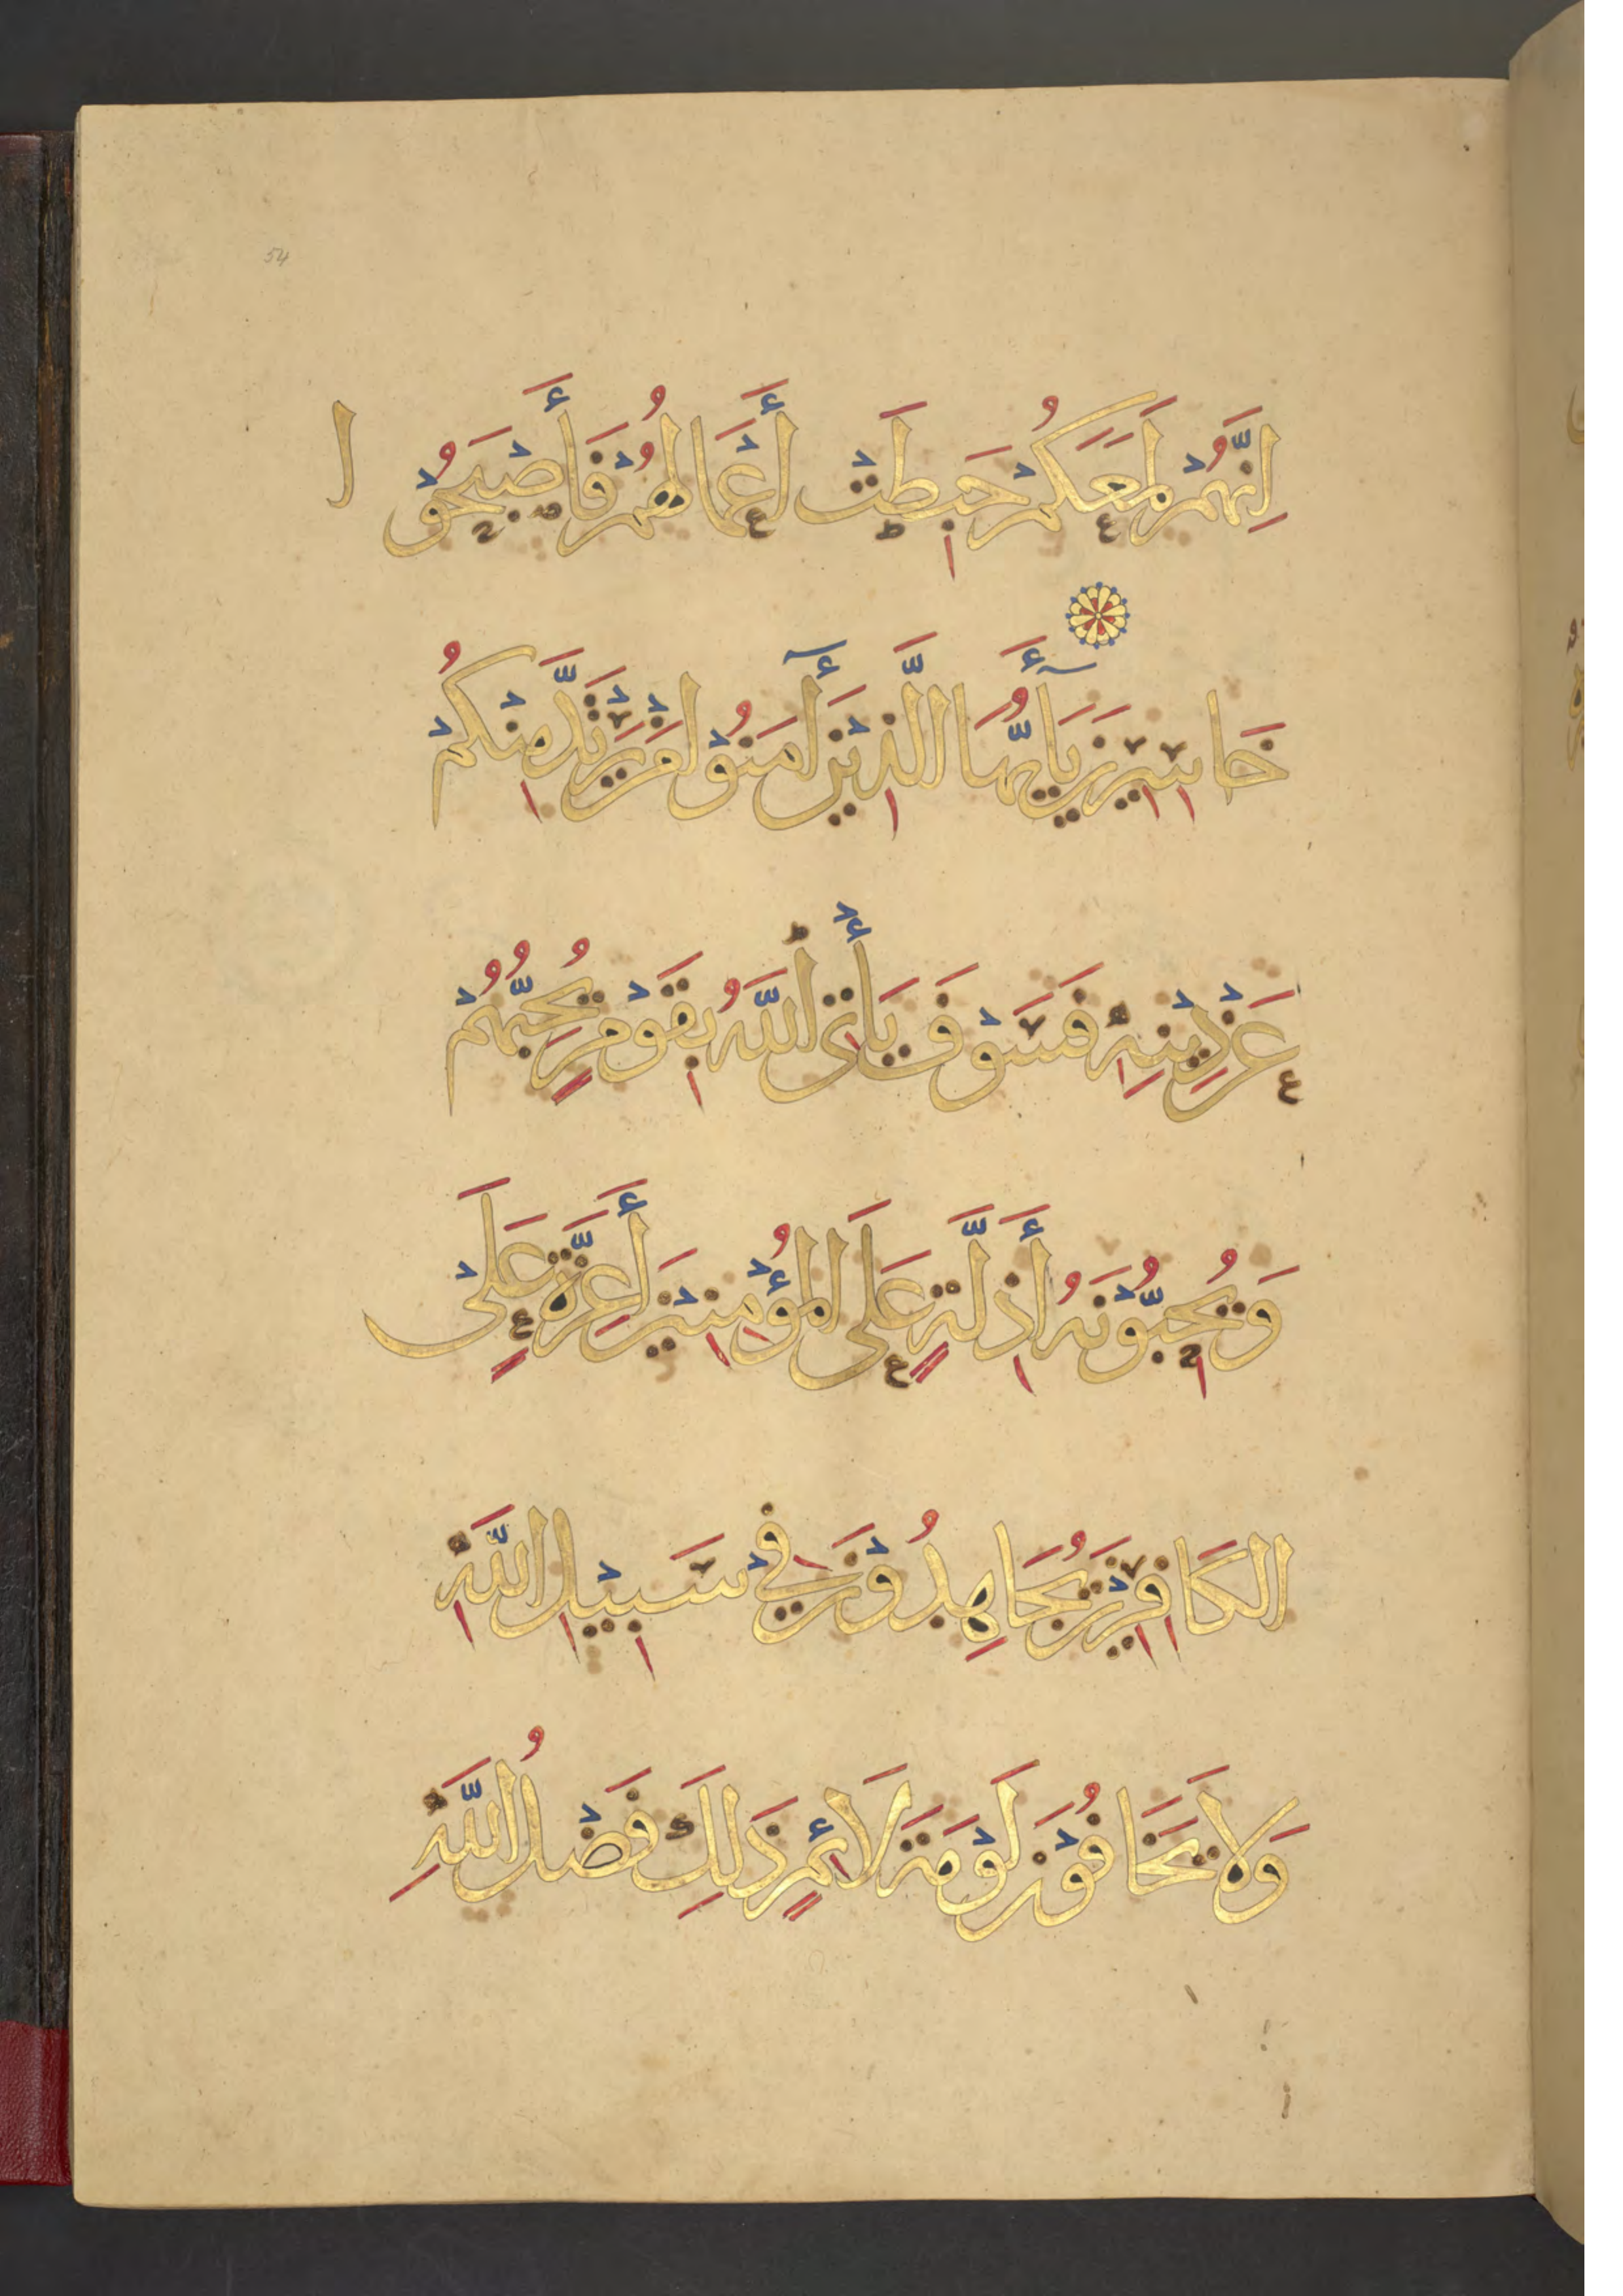 54
إِنَّهُمْ لَمَعَكُمْ حَبِطَتْ أَعْمَالُهُمْ فَأَصْبَحُوْا
خَاسِرِيْنَ يَاأَيُّهَا الَّذِيْنَ أٓمَنُوْا مَنْ يَرْتَدَّ مِنْكُمْ
عَنْ دِيْنِهِ فَسَوْفَ يَأْتِى اللَّهُ بِقَوْمٍ يُحِبُّهُمْ
وَيُحِبُّوْنَهُ أَذِلَّةٍ عَلَى الْمُؤْمِنِيْنَ أَعِزَّةٍ عَلَى
الكَافِرِيْنَ يُجَاهِدُوْنَ فِيْ سَبِيْلِ اللَّهِ
وَلَا يَخَافُوْنَ لَوْمَةَ لَائِمٍ ذَلِكَ فَضْلُ اللَّهِ